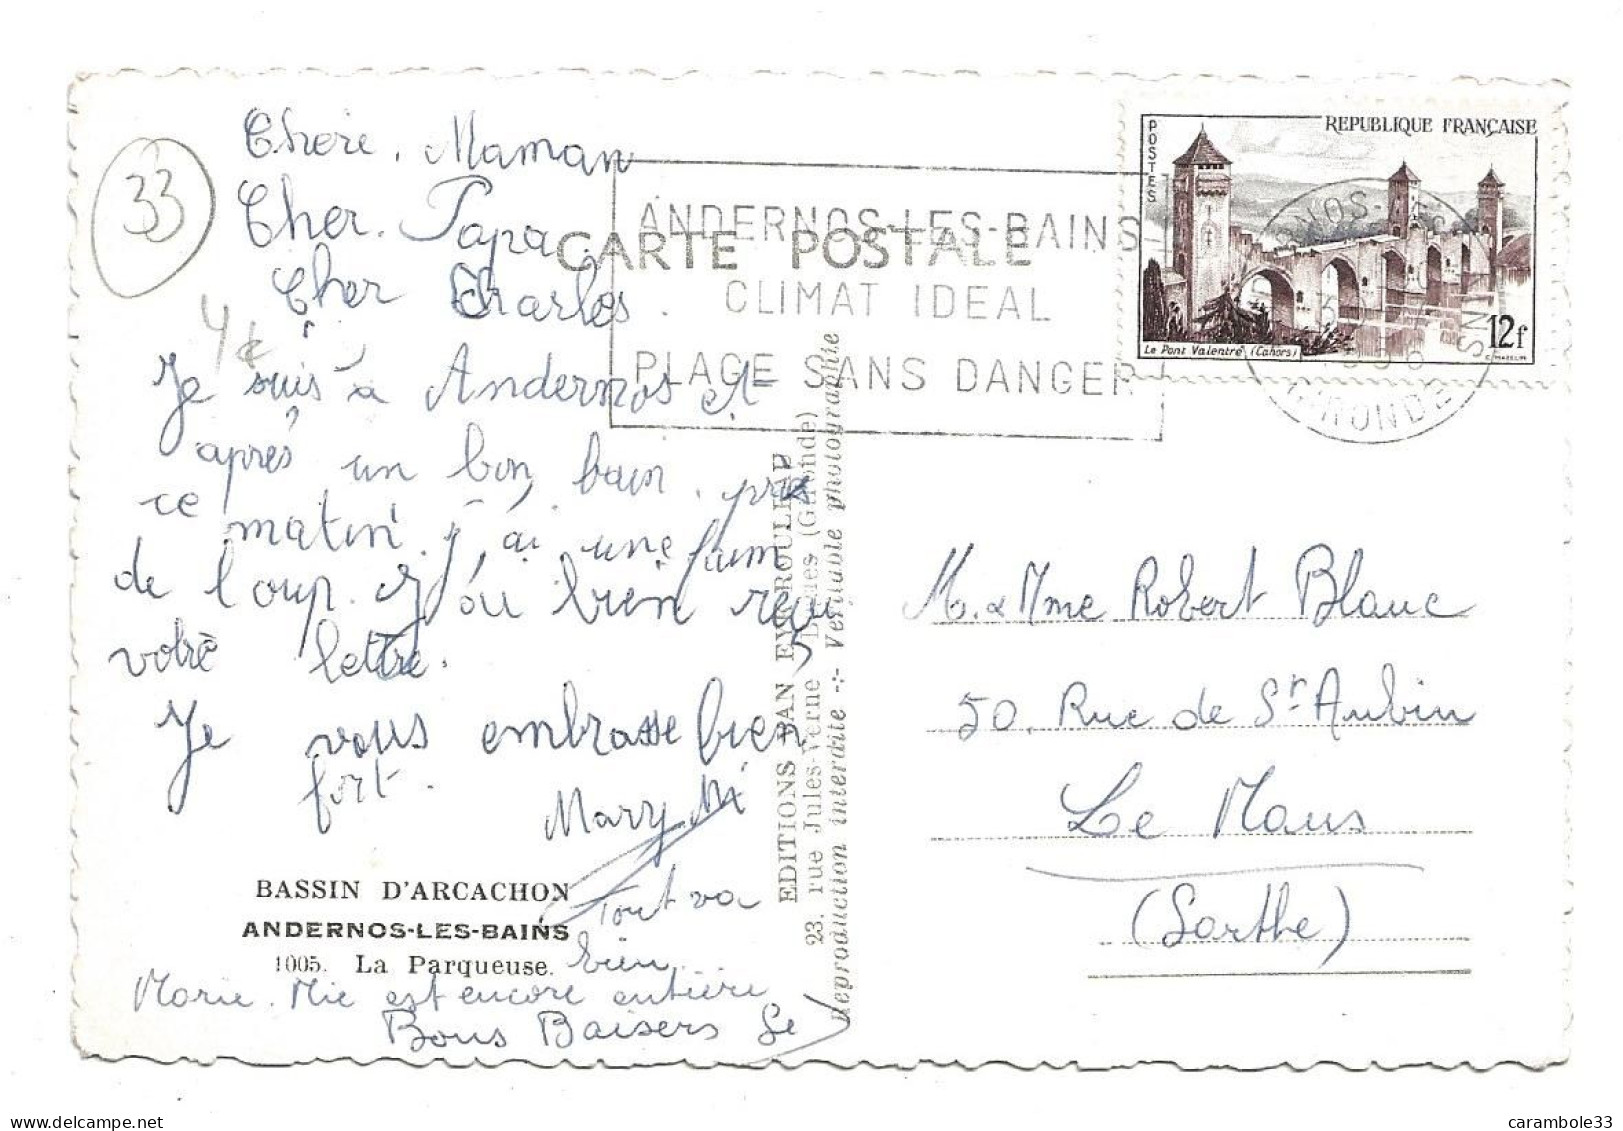 33
Chère. Maman
Cher. Papa.
Cher Charles.
4€
Je suis à Andernos et
après un bon bain. pris
ce matin. j'ai une faim
de loup. J'ai bien reçu
votre lettre.
Je vous embrasse bien
fort.
Mary Mi
Tout va
bien.
Marie. Mie est encore entière
Bons Baisers
BASSIN D'ARCACHON
ANDERNOS-LES-BAINS
1005. La Parqueuse.
CARTE POSTALE
ANDERNOS-LES-BAINS
CLIMAT IDEAL
PLAGE SANS DANGER
EDITIONS JAN
23, rue Jules-Verne (Gironde)
Reproduction interdite -:- Véritable photographie
POSTES
REPUBLIQUE FRANÇAISE
12f
Le Pont Valentré (Cahors)
C. MAZELIN
GIRONDE
M. & Mme Robert Blanc
50. Rue de St Aubin
Le Mans
(Sarthe)
delcampe.net
carambole33